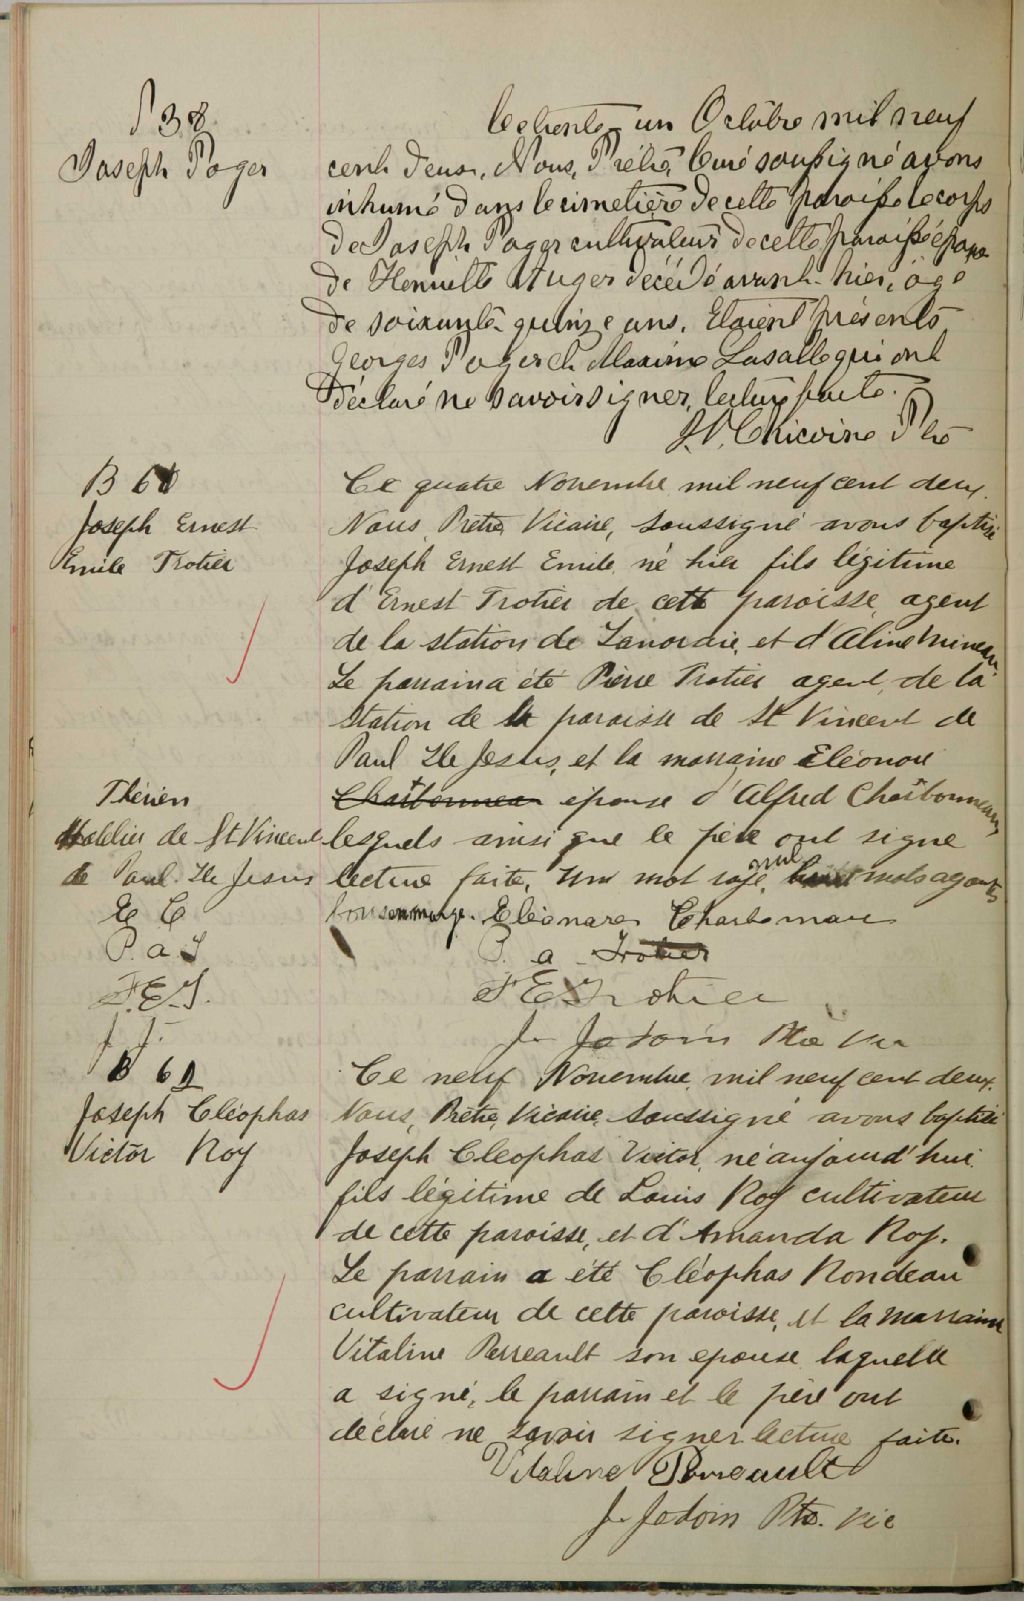 S 38
Joseph Poger
Le trente-un Octobre mil neuf
cent deux, Nous, Prêtre, Curé soussigné avons
inhumé dans le cimetière de cette paroisse le corps
de Joseph Poger cultivateur de cette paroisse époux
de Henriette Auger décédé avant-hier, âgé
de soixante quinze ans. Etaient présents
Georges Poger et Maxime Lasalle qui ont
déclaré ne savoir signer, lecture faite.
Chicoine Ptre
B 60
Joseph Ernest
Emile Trotier
Ce quatre Novembre mil neuf cent deux.
Nous, Prêtre, Vicaire, soussigné avons baptisé
Joseph Ernest Emile, né hier fils légitime
d'Ernest Trotier de cette paroisse, agent
de la station de Lanoraie, et d'Aline Mineau.
Le parrain a été Pierre Trotier agent de la
station de la paroisse de St Vincent de
Paul Ile Jesus, et la marraine Eléonore
Charbonneau épouse d'Alfred Charbonneau
lesquels ainsi que le père ont signé
lecture faite, Un mot rayé, nul mots ajoutés
bons en marge. Eléonare Charbonneau
Thérien
hotelier de St Vincent
de Paul Ile Jesus
E C
P. a T
F. E. T.
J. J.
P. a Trotier
F E Trotier
J. Jodoin Ptre Vic
B 61
Joseph Cléophas
Victor Roy
Ce neuf Novembre, mil neuf cent deux,
Nous, Prêtre, Vicaire, soussigné avons baptisé
Joseph Cleophas Victor, né aujourd'hui
fils légitime de Louis Roy cultivateur
de cette paroisse, et d'Amanda Roy.
Le parrain a été Cléophas Rondeau
cultivateur de cette paroisse, et la marraine
Vitaline Perreault son epouse laquelle
a signé, le parrain et le père ont
déclaré ne savoir signer lecture faite.
Vitaline Perreault
J. Jodoin Ptre. Vic